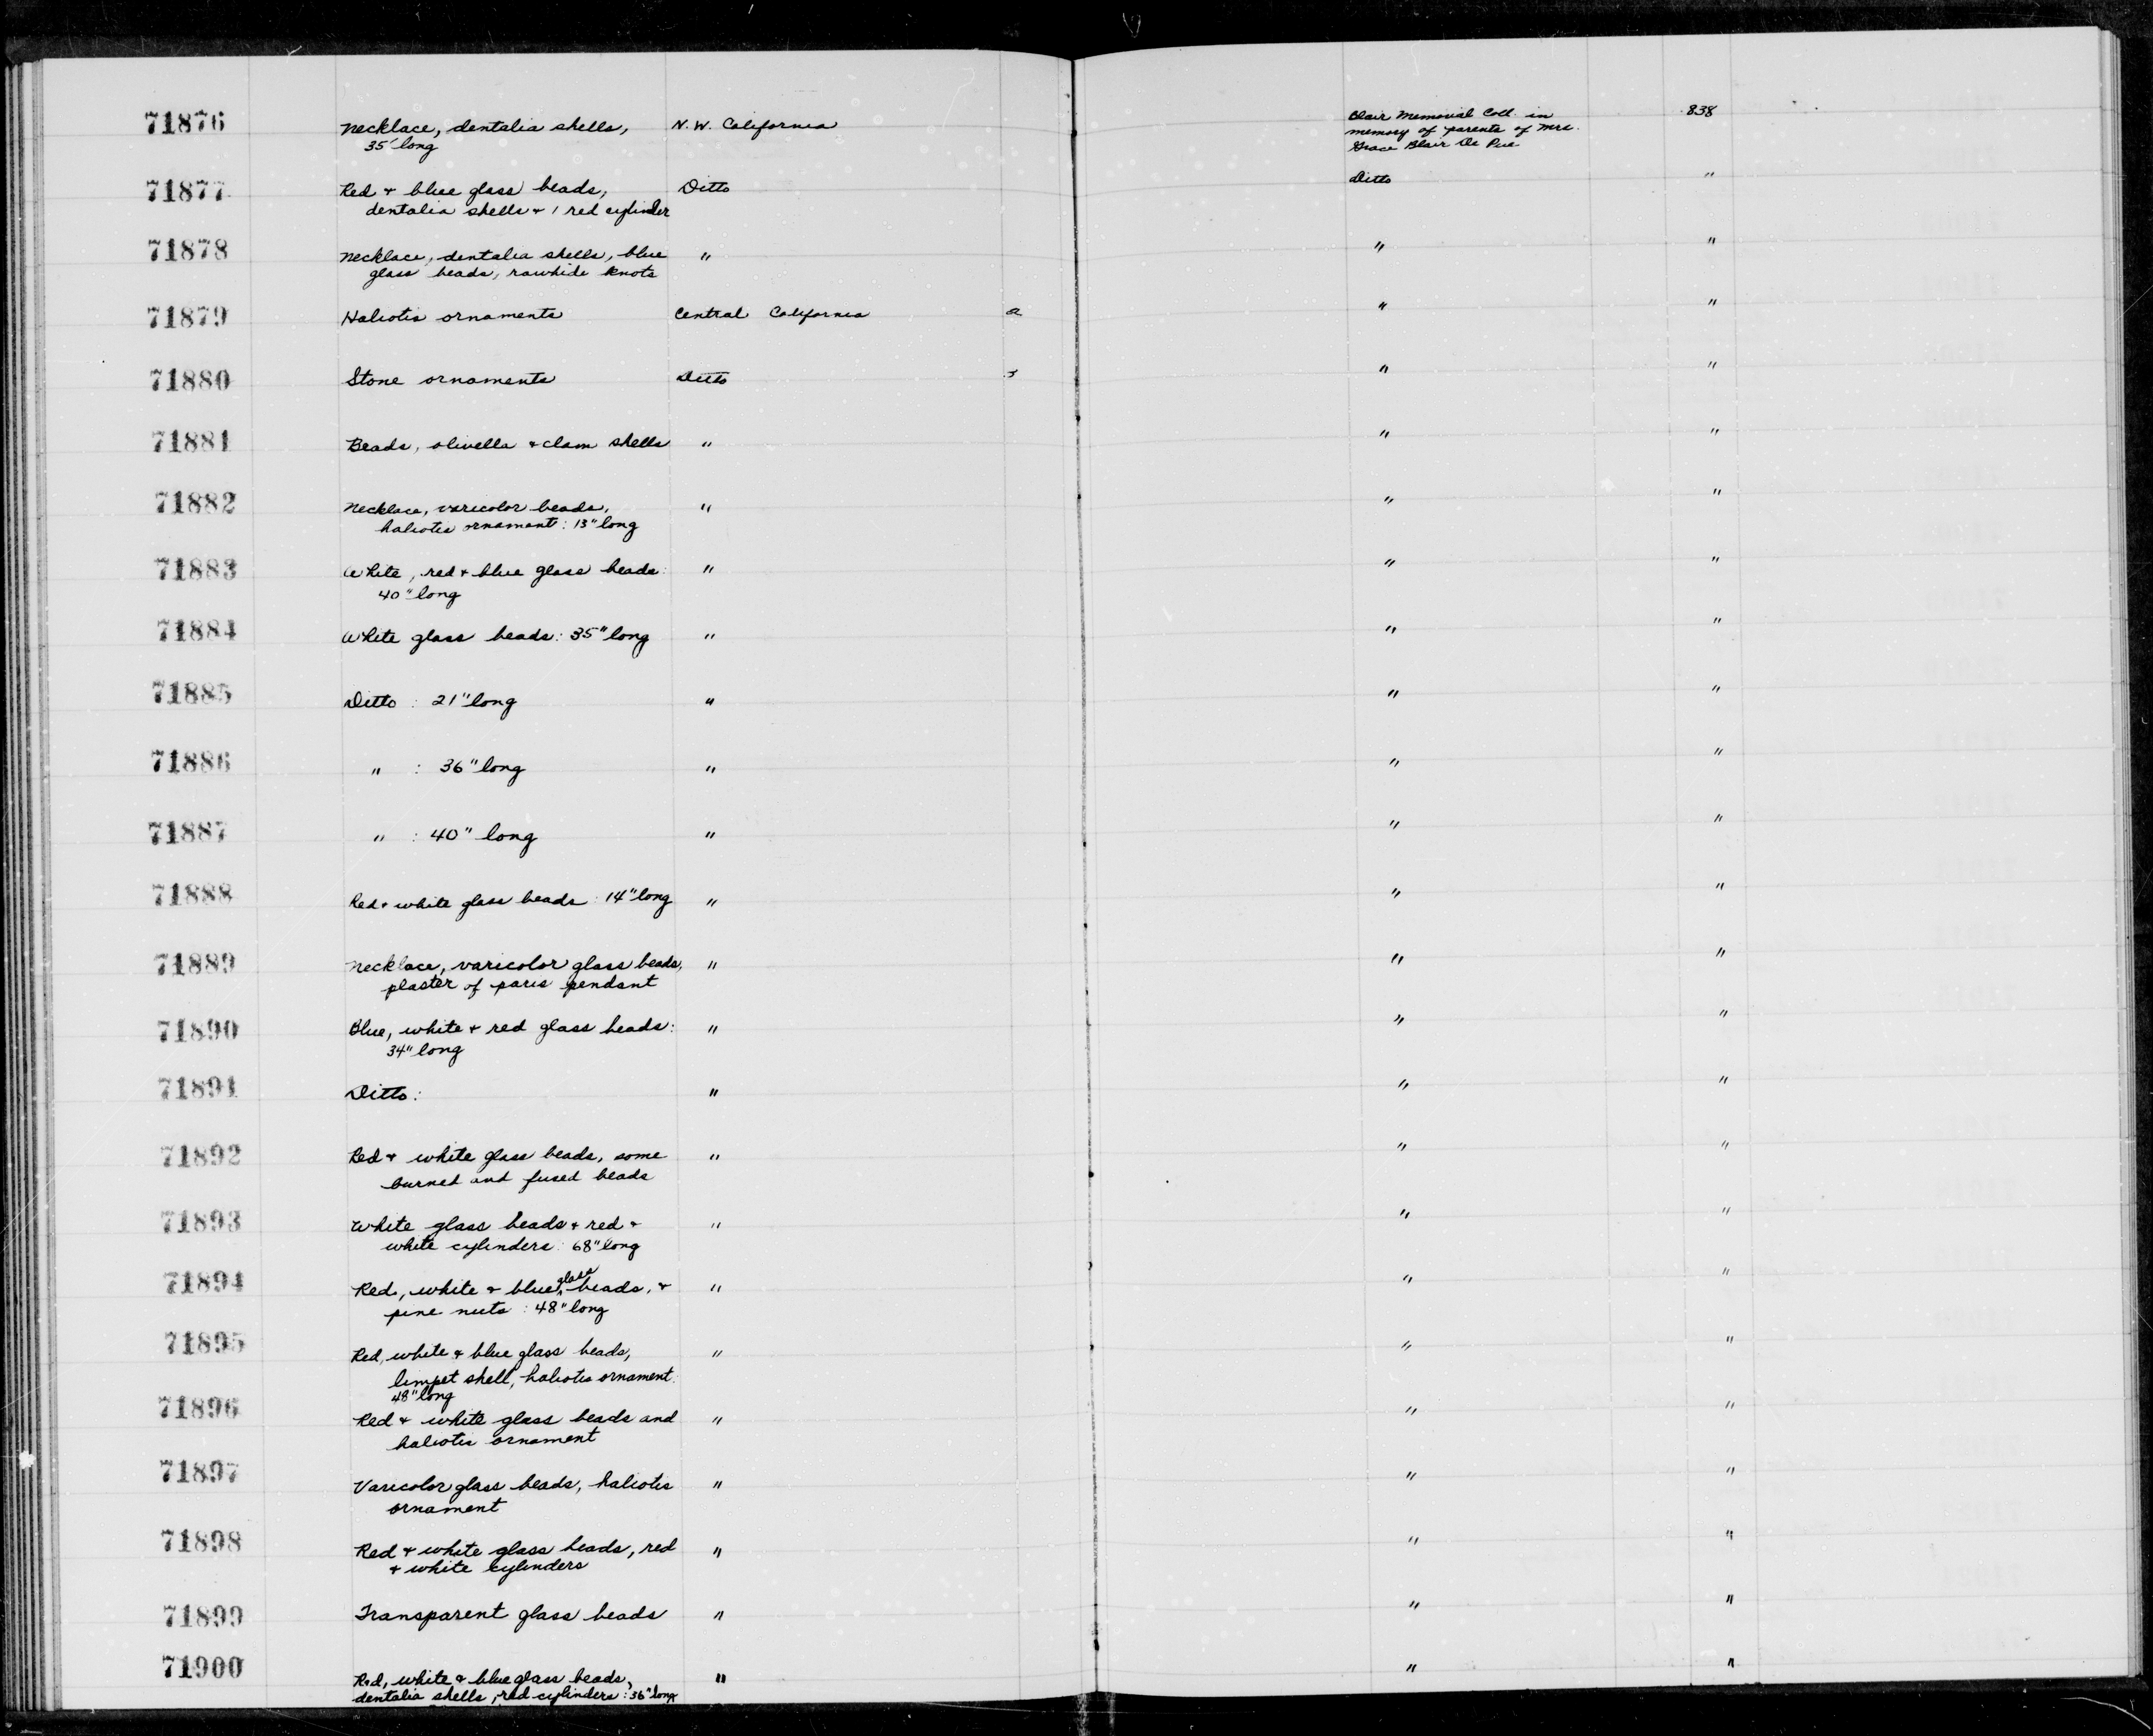 71876 Necklace, dentalia shells, N.W. California Blair Memorial Coll. in 838
35" long memory of parents of Mrs.
Grace Blair De Pue
71877 Red + blue glass beads, Ditto Ditto "
dentalia shells + 1 red cylinder
71878 Necklace, dentalia shells, blue " " "
glass beads, rawhide knots
71879 Haliotis ornaments Central California 2 " "
71880 Stone ornaments Ditto 3 " "
71881 Beads, olivella + clam shells " " "
71882 Necklace, varicolor beads, " " "
haliotis ornament: 13" long
71883 White, red + blue glass beads: " " "
40" long
71884 White glass beads: 35" long " " "
71885 Ditto : 21" long " " "
71886 " : 36" long " " "
71887 " : 40" long " " "
71888 Red + white glass beads: 14" long " " "
71889 Necklace, varicolor glass beads, " " "
plaster of paris pendant
71890 Blue, white + red glass beads: " " "
34" long
71891 Ditto: " " "
71892 Red + white glass beads, some " " "
burned and fused beads
71893 White glass beads + red + " " "
white cylinders: 68" long
71894 Red, white + blue glass beads, + " " "
pine nuts : 48" long
71895 Red, white + blue glass beads, " " "
limpet shell, haliotis ornament:
48" long
71896 Red + white glass beads and " " "
haliotis ornament
71897 Varicolor glass beads, haliotis " " "
ornament
71898 Red + white glass beads, red " " "
+ white cylinders
71899 Transparent glass beads " " "
71900 Red, white + blue glass beads, " " "
dentalia shells, red cylinders: 36" long